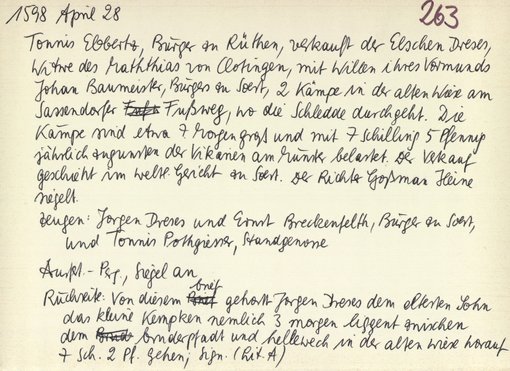 1598 April 28
263
Tonnis Ebbertz, Bürger zu Rüthen, verkauft der Elschen Dreses,
Witwe des Matthias von Clotingen, mit Willen ihres Vormunds
Johan Baumeister, Bürgers zu Soest, 2 Kämpe in der alten Wiese am
Sassendorfer Fußweg, wo die Schledde durchgeht. Die
Kämpe sind etwa 7 Morgen groß und mit 7 Schilling 5 Pfennig
jährlich zugunsten der Vikarien am Münster belastet. Der Verkauf
geschieht im weltl. Gericht zu Soest. Der Richter Goßman Heine
siegelt.
Zeugen: Jorgen Dreses und Ernst Breckenfelth, Bürger zu Soest,
und Tonnis Pothgiesser, Standgenosse
Ausf.- Perg., Siegel an
Rückseite: Von diesem brief gehort Jorgen Dreses dem altesten Sohn
das kleine Kempken nemlich 3 morgen liggent zwischen
dem broderpfadt und hellewech in der alten wiese worauf
7 Sch. 2 Pf. gehen; sign. (Lit. A)